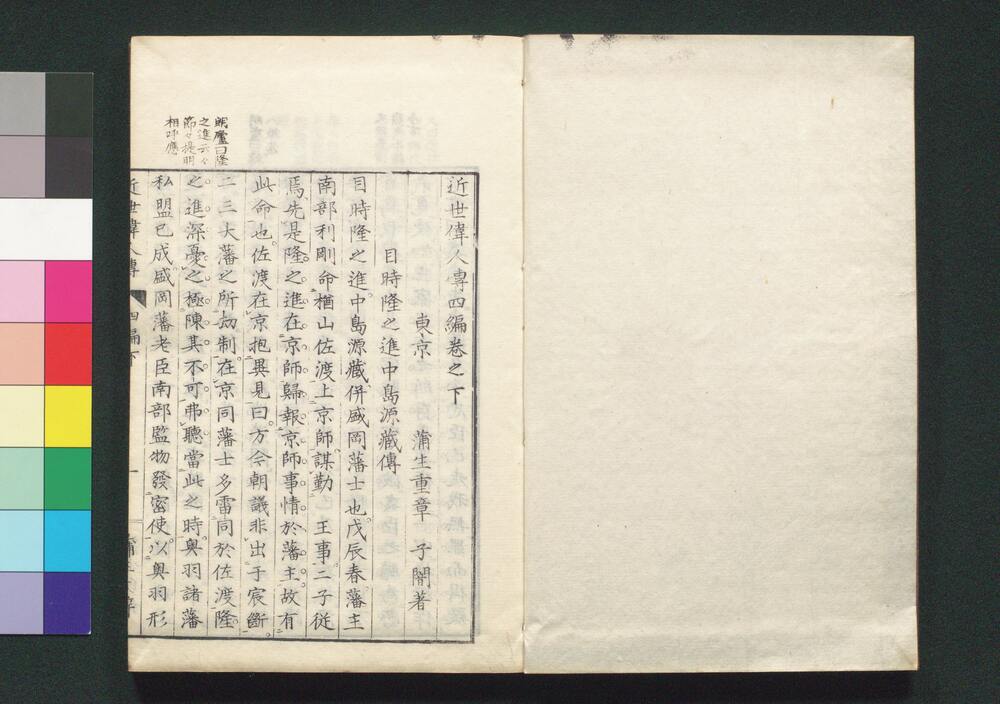 近世偉人傳四編卷之下
東京 蒲生重章 子闇著
目時隆之進中島源藏傳
目時隆之進。中島源藏。併盛岡藩士也。戊辰春。藩主
南部利剛命楢山佐渡上京師。謀勤 王事。二子從
焉。先是隆之進在京師。歸報京師事情於藩主。故有
此命也。佐渡在京抱異見曰。方今朝議非出于宸斷。
二三大藩之所劫制。在京同藩士多雷同於佐渡。隆
之進深憂之。極陳其不可。弗聽。當此之時。奧羽諸藩
私盟已成。盛岡藩老臣南部監物發密使。以奧羽形
近世偉人傳 四編下 一
曰隆
之進云々
節々提明
相呼應